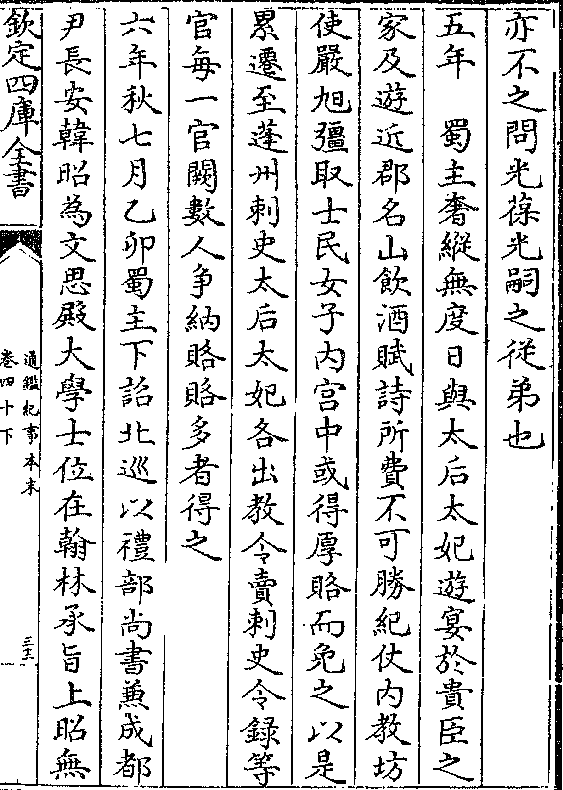 亦不之問光葆光嗣之從弟也
五年　蜀主奢縱無度日與太后太妃遊宴於貴臣之
家及遊近郡名山飲酒賦詩所費不可勝紀仗内教坊
使嚴旭彊取士民女子内宫中或得厚賂而免之以是
累遷至蓬州刺史太后太妃各出教令賣刺史令録等
官每一官闕數人争納賂賂多者得之
六年秋七月乙卯蜀主下詔北巡以禮部尚書兼成都
尹長安韓昭為文思殿大學士位在翰林承旨上昭無
欽定四庫全書
通鑑紀事本末
卷四十下
三十三